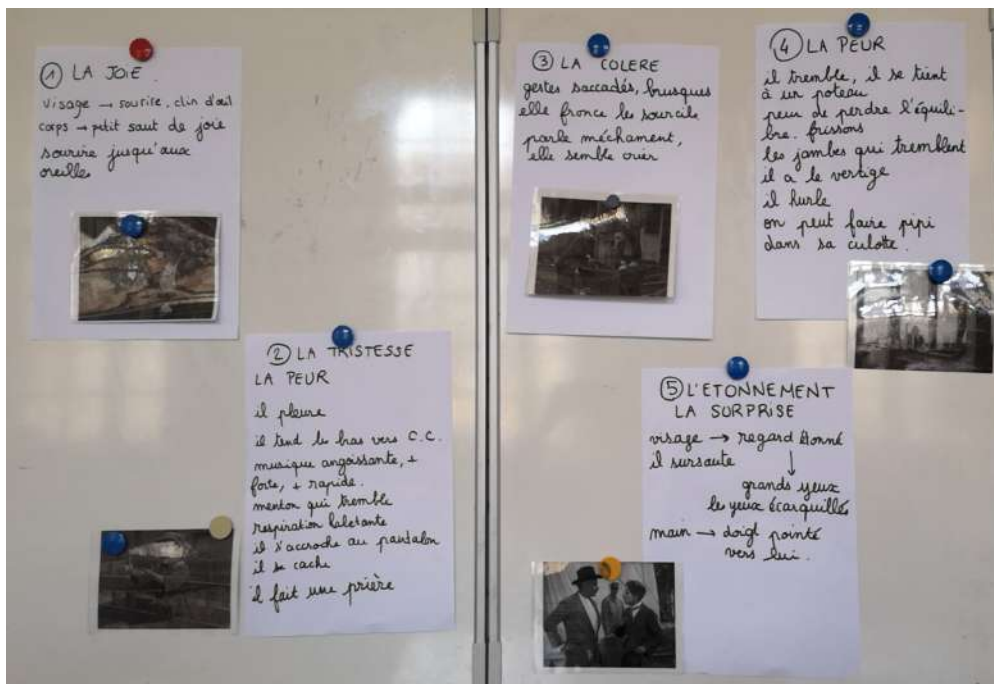 ① LA JOIE.
visage → sourire, clin d'œil
corps → petit saut de joie
sourire jusqu'aux
oreilles
② LA TRISTESSE
LA PEUR
il pleure
il tend les bras vers C.C.
musique angoissante, +
forte, + rapide.
menton qui tremble
respiration haletante
il s'accroche au pantalon
il se cache
il fait une prière
③ LA COLERE
gestes saccadés, brusques
elle fronce les sourcils
parle méchament,
elle semble crier
④ LA PEUR
il tremble, il se tient
à un poteau
peur de perdre l'équili-
bre. frissons
les jambes qui tremblent
il a le vertige
il hurle
on peut faire pipi
dans sa culotte.
⑤ L'ETONNEMENT
LA SURPRISE
visage → regard étonné
il sursaute ↓
grands yeux
les yeux écarquillés
main → doigt pointé
vers lui.